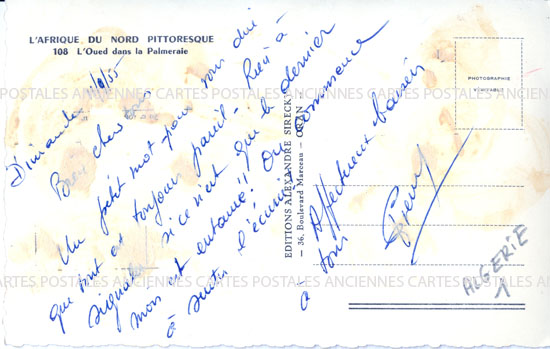 L'AFRIQUE DU NORD PITTORESQUE
108 L'Oued dans la Palmeraie
Dimanche 1/ /55
Bien chers tous
Un petit mot pour vous dire
que tout est toujours pareil - Rien à
signaler si ce n'est que le dernier
mois est entamé! On commence
à sentir l'écurie
Affectueux baisers
à tous
Pierre
EDITIONS ALEXANDRE SIRECKY
— 36, Boulevard Marceau — ORAN
PHOTOGRAPHIE
VÉRITABLE
ALGERIE
1
POSTALES ANCIENNES CARTES POSTALES ANCIENNES CARTES POSTALES ANCIENNES CARTES POSTALES
CARTES POSTALES ANCIENNES CARTES POSTALES ANCIENNES CARTES POSTALES ANCIENNES CARTES